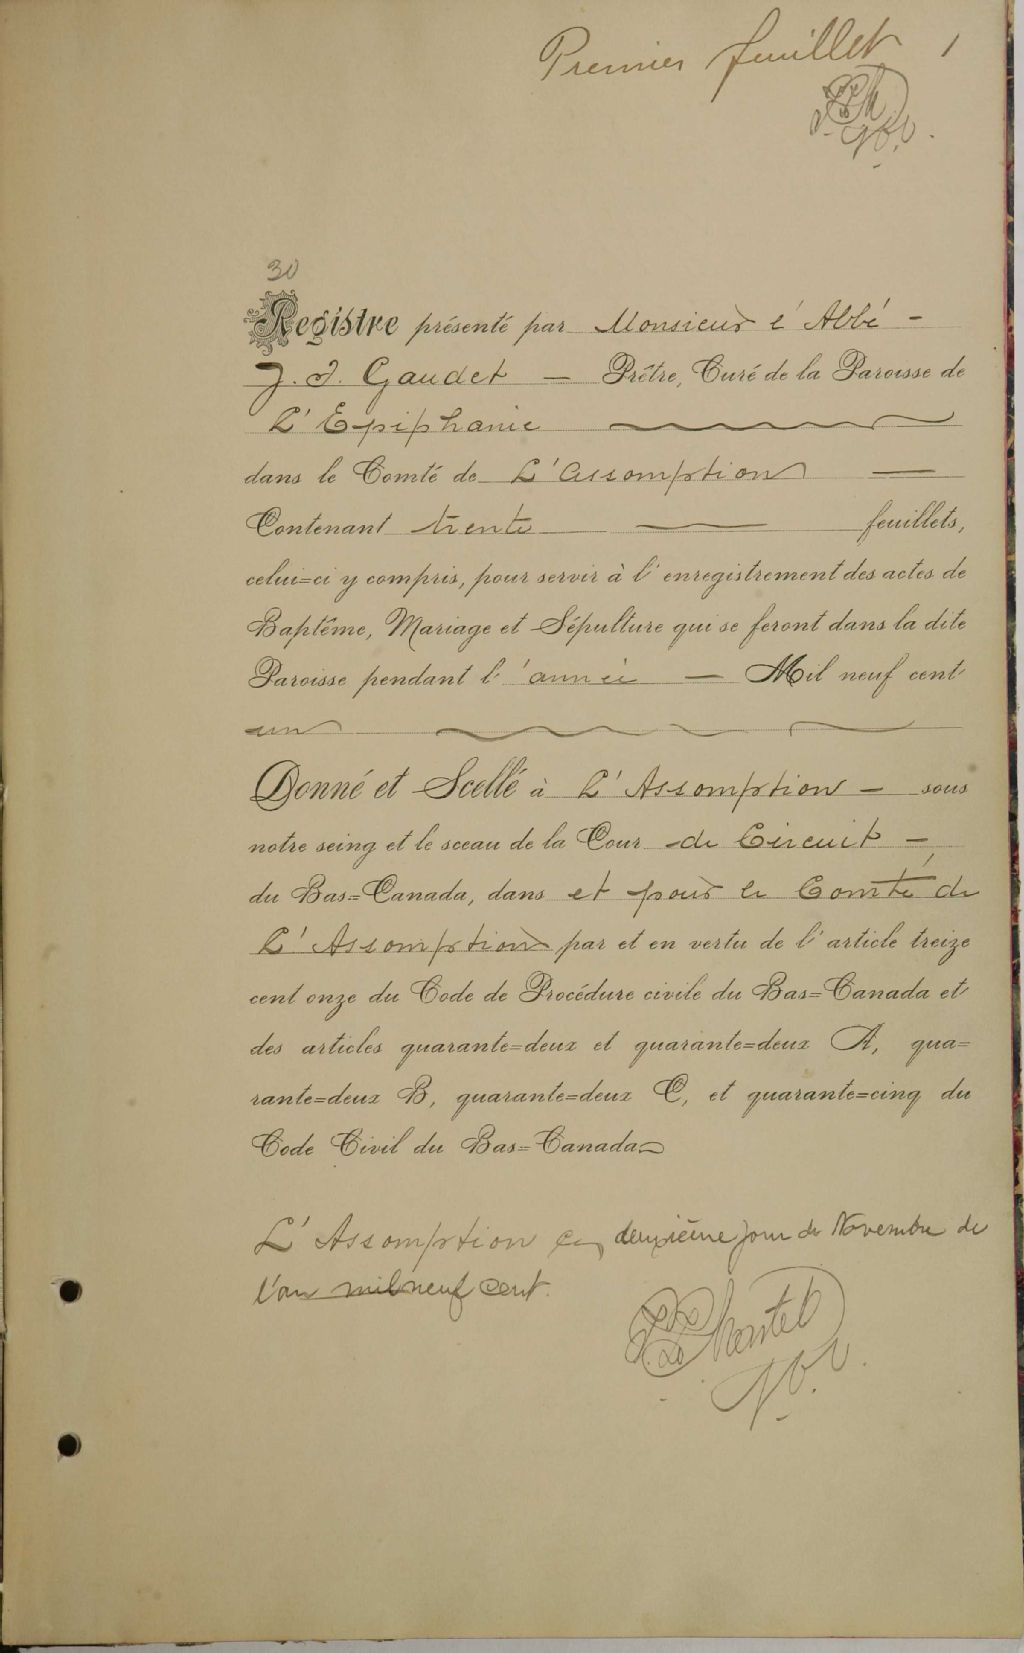 Premier feuillet 1
30
Registre présenté par Monsieur l'Abbé -
J. J. Gaudet - Prêtre, Curé de la Paroisse de
L'Epiphanie
dans le Comté de L'Assomption
Contenant trente feuillets,
celui=ci y compris, pour servir à l'enregistrement des actes de
Baptême, Mariage et Sépulture qui se feront dans la dite
Paroisse pendant l'année - Mil neuf cent
un
Donné et Scellé à L'Assomption - sous
notre seing et le sceau de la Cour de Circuit -
du Bas=Canada, dans et pour le Comté de
L'Assomption par et en vertu de l'article treize
cent onze du Code de Procédure civile du Bas=Canada et
des articles quarante=deux et quarante=deux A, qua=
rante=deux B, quarante=deux C, et quarante=cinq du
Code Civil du Bas=Canada
L'Assomption ce deuxième jour de Novembre de
l'an mil neuf cent.